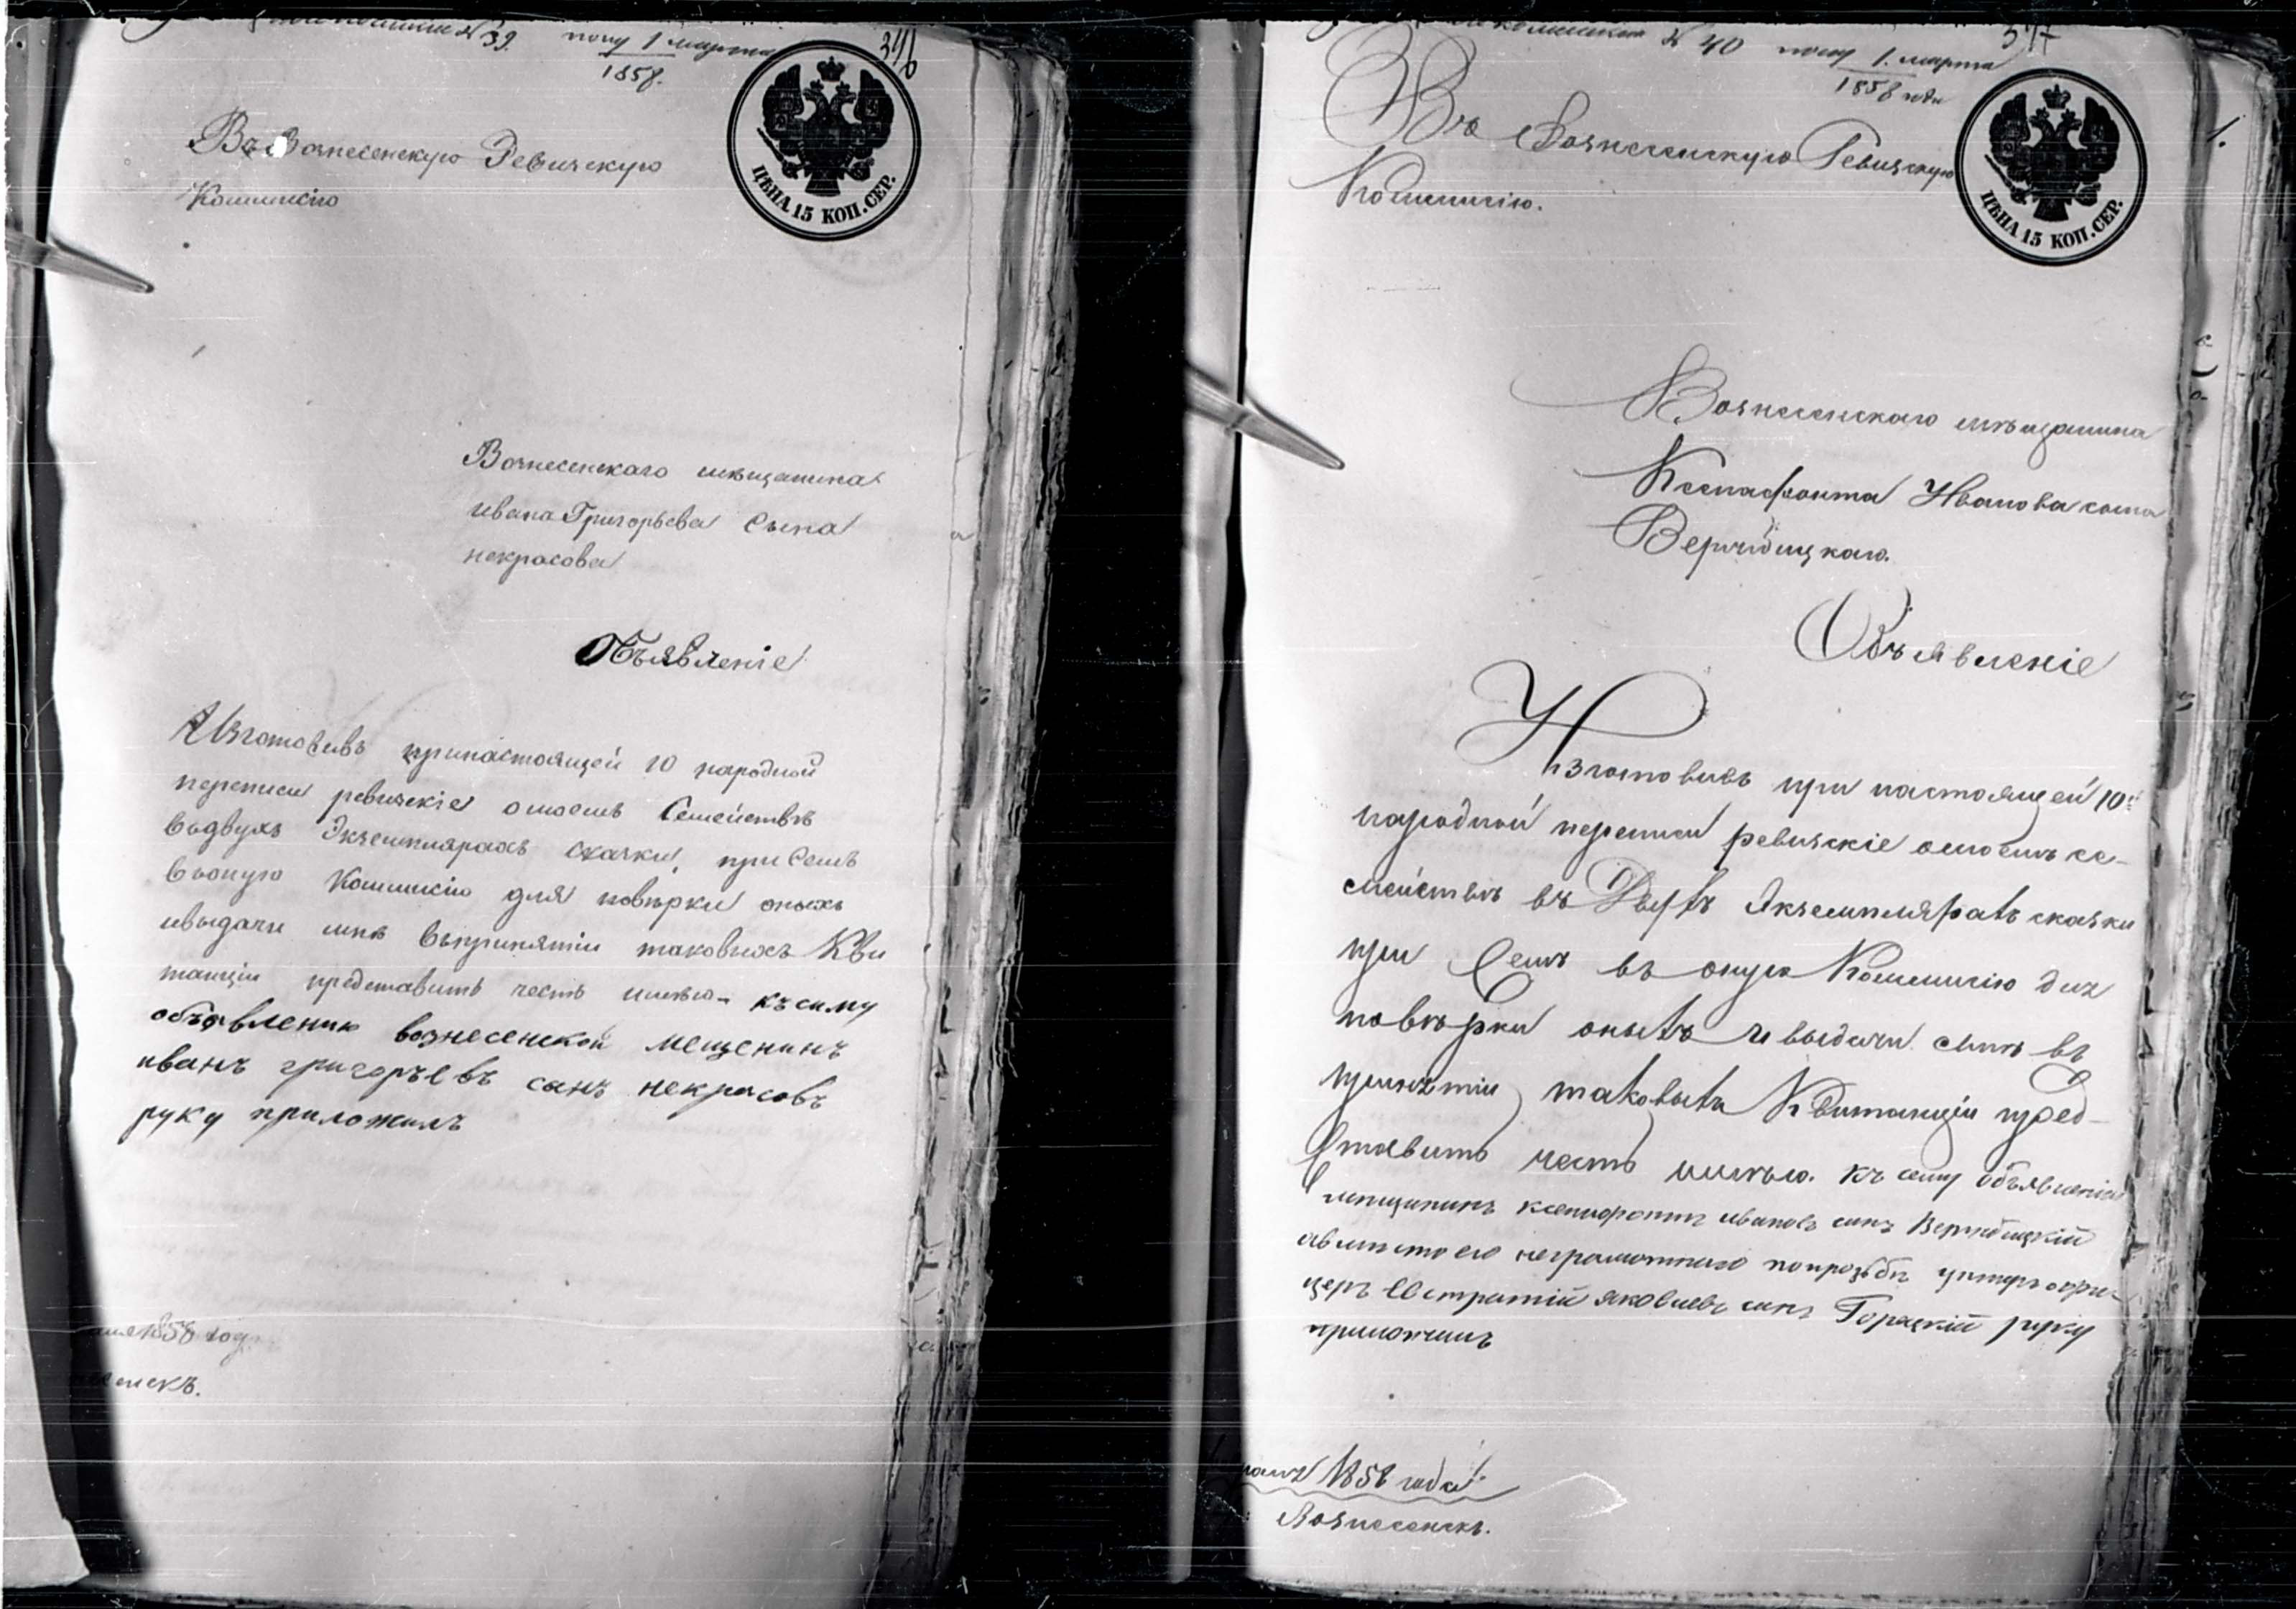 № 39. полу 1 марта
1858.
346
Въ Вознесенскую Ревизскую
Коммисію
ЦѢНА 15 КОП. СЕР.
Вознесенскаго мѣщанина
ивана Григорьева Сына
некрасова
Объявленіе
Изготовивъ принастоящей 10 народной
переписи ревизскіе омоемъ Семействѣ
въдвухъ Экземплярахъ сказки, присемъ
вьоную Коммисію для повѣрки оныхъ
ивыдачи мнѣ въпринятіи таковыхъ Кви
танціи представить честь имѣю- къ симу
объявлению вознесенской мещенинъ
иванъ григорьевъ сынъ некрасовъ
руку приложилъ
1858 год
№ 40 полу 1. марта
1858 года
347
Въ Вознесенскую Ревизскую
Коммисію.
ЦѢНА 15 КОП. СЕР.
1.
Вознесенскаго мѣщанина
Ксенафонта Иванова сына
Вержбицкаго.
Объявленіе
Изготовивъ при настоящей 10й
народной переписи ревизскіе омоемъ се-
мействѣ въ Двухъ Экземплярахъ сказки
при Семъ въ оную Коммисію для
повѣрки оныхъ и выдачи мнѣ въ
принятіи таковыхъ Квитанціи пред-
ставить честь имѣю. къ сему объявленію
мещининъ ксенофонтъ ивановъ синъ Вержбицкій
авмисто его неграмотного попрозьби унтеръ офи-
церъ Евстратій яковлевъ синъ Горецкій руку
приложилъ
1858 года
Вознесенскъ.